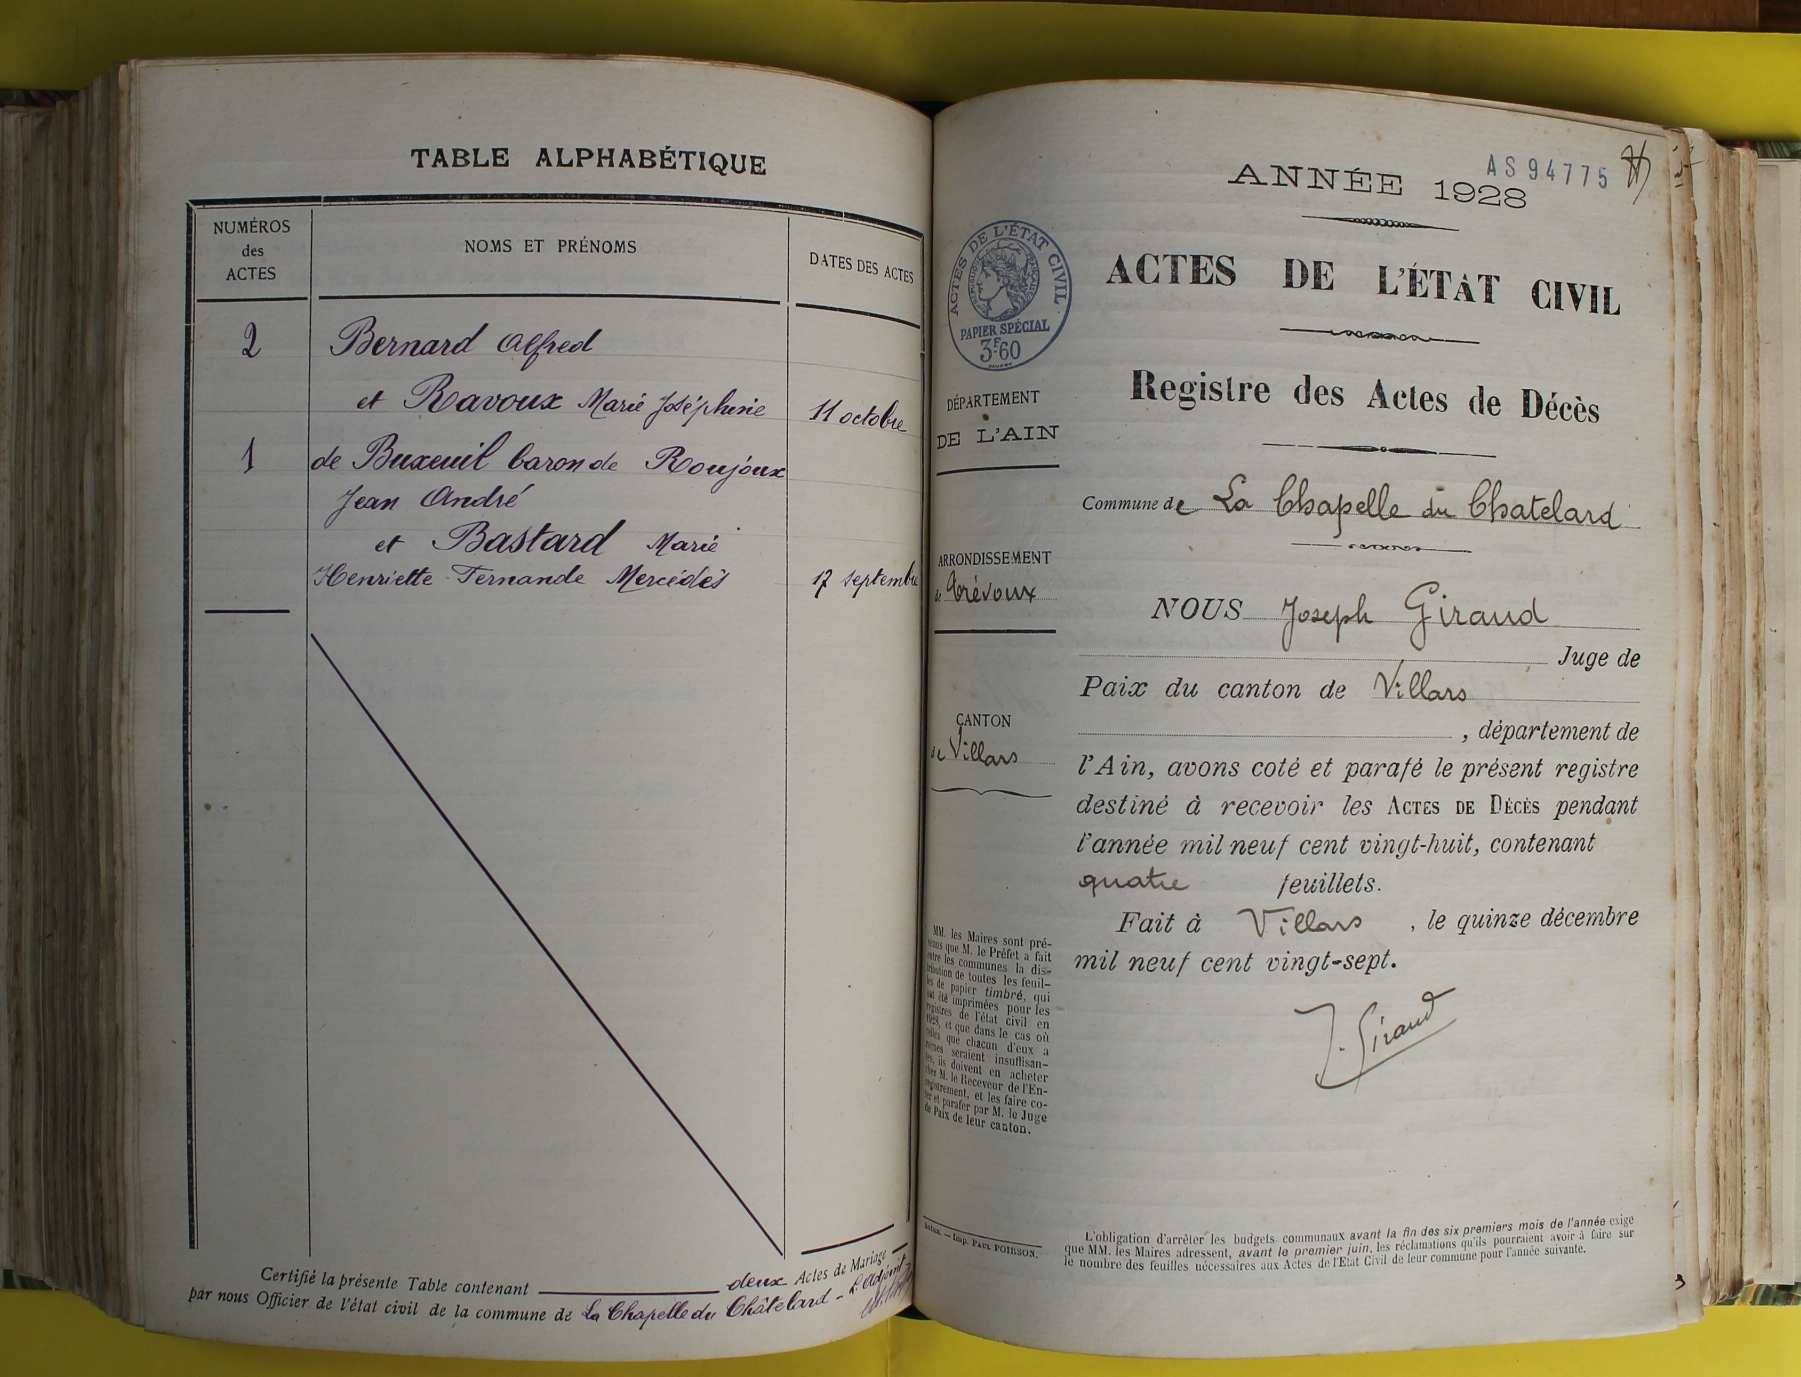 TABLE ALPHABÉTIQUE
NUMÉROS
des
ACTES
NOMS ET PRÉNOMS
DATES DES ACTES
2 Bernard Alfred
et Ravoux Marie Joséphine 11 octobre
1 de Buxeuil baron de Roujoux
Jean André
et Bastard Marie
Henriette Fernande Mercédès 17 septembre
Certifié la présente Table contenant deux Actes de Mariage
par nous Officier de l'état civil de la commune de La Chapelle du Châtelard - L'Adjoint
AS94775
ANNÉE 1928
ACTES DE L'ÉTAT CIVIL
PAPIER SPÉCIAL
3F60
ACTES DE L'ÉTAT CIVIL
Registre des Actes de Décès
DÉPARTEMENT
DE L'AIN
Commune de La Chapelle du Chatelard
ARRONDISSEMENT
de Trévoux
NOUS Joseph Giraud
Juge de
Paix du canton de Villars
CANTON
de Villars
, département de
l'Ain, avons coté et parafé le présent registre
destiné à recevoir les ACTES DE DÉCÈS pendant
l'année mil neuf cent vingt-huit, contenant
quatre feuillets.
Fait à Villars , le quinze décembre
mil neuf cent vingt-sept.
J. Giraud
MM. les Maires sont pré-
venus que M. le Préfet a fait
entre les communes la dis-
tribution de toutes les feuil-
les de papier timbré, qui
ont été imprimées pour les
registres de l'état civil en
1928, et que dans le cas où
celles que chacun d'eux a
reçues seraient insuffisan-
tes, ils doivent en acheter
chez M. le Receveur de l'En-
registrement, et les faire co-
ter et parafer par M. le Juge
de Paix de leur canton.
Imp. PAUL POIRSON.
L'obligation d'arrêter les budgets communaux avant la fin des six premiers mois de l'année exige
que MM. les Maires adressent, avant le premier juin, les réclamations qu'ils pourraient avoir à faire sur
le nombre des feuilles nécessaires aux Actes de l'Etat Civil de leur commune pour l'année suivante.